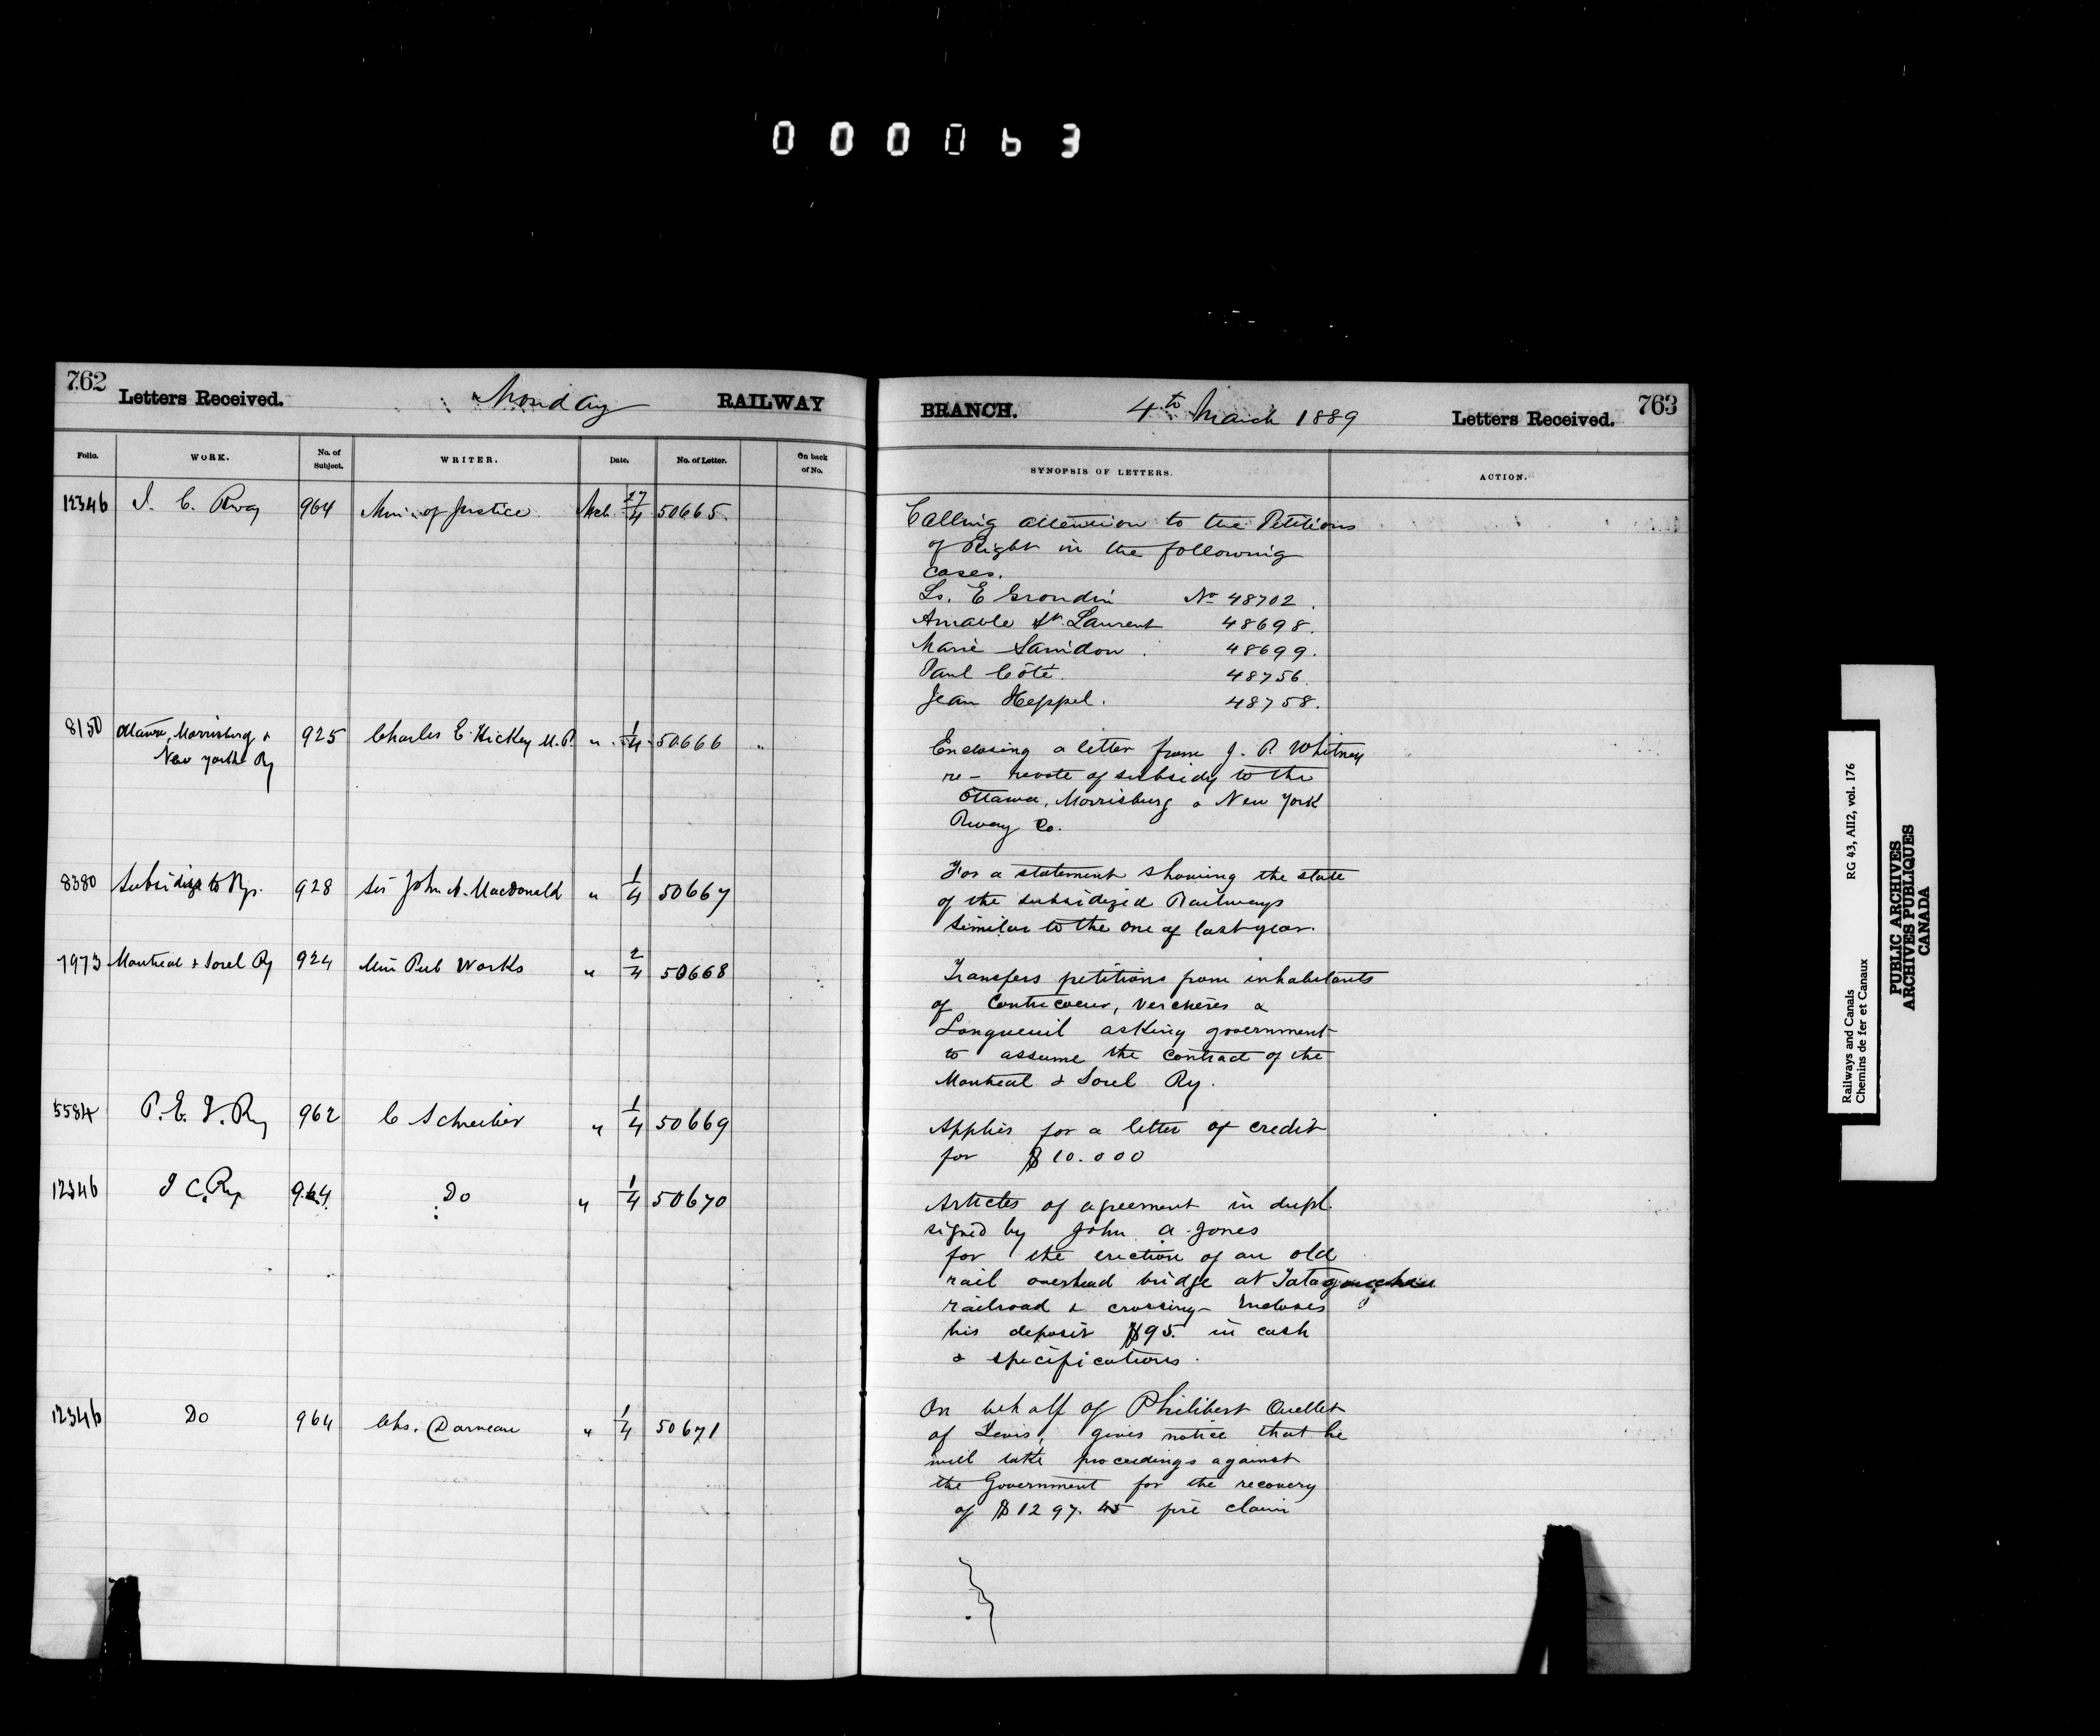 000063
762 Letters Received. Monday RAILWAY
Folio. WORK. No. of Subject. WRITER. Date. No. of Letter. On back of No.
12346 I. C. Rway 964 Min. of Justice Mch 27/4 50665
8150 Ottawa, Morrisburg & 925 Charles E. Hickey M.P. " 1/4 50666 "
New York Ry
8380 Subsidize to Rys. 928 Sir John A. Macdonald " 1/4 50667
7973 Montreal & Sorel Ry 924 Min Pub Works " 2/4 50668
5584 P. E. I. Ry 962 C Schreiber " 1/4 50669
12346 I C. Ry 964 Do " 1/4 50670
12346 Do 964 Chs. Darveau " 1/4 50671
BRANCH. 4th March 1889 Letters Received. 763
SYNOPSIS OF LETTERS. ACTION.
Calling attention to the Petitions
of Right in the following
cases.
Ls. E Grondin No 48702.
Amable St. Laurent 48698.
Marie 48699.
Paul Côté. 48756.
Jean Heppel. 48758.
Enclosing a letter from J. P. Whitney
re- revote of subsidy to the
Ottawa, Morrisburg & New York
Rway Co.
For a statement showing the state
of the subsidized Railways
similar to the one of last year.
Transfers petitions from inhabitants
of Contrecoeur, Vercheres &
Longueuil asking government
to assume the contract of the
Montreal & Sorel Ry.
Applies for a letter of credit
for $10.000
Articles of agreement in dupl.
signed by John A. Jones
for the erection of an old
rail overhead bridge at
railroad & crossing - Incloses
his deposit $95. in cash
& specifications.
On behalf of Philibert Ouellet
of Levis, gives notice that he
will take proceedings against
the Government for the recovery
of $1297.45 fire claim
Railways and Canals RG 43, AII2, vol. 176
Chemins de fer et Canaux
PUBLIC ARCHIVES
ARCHIVES PUBLIQUES
CANADA